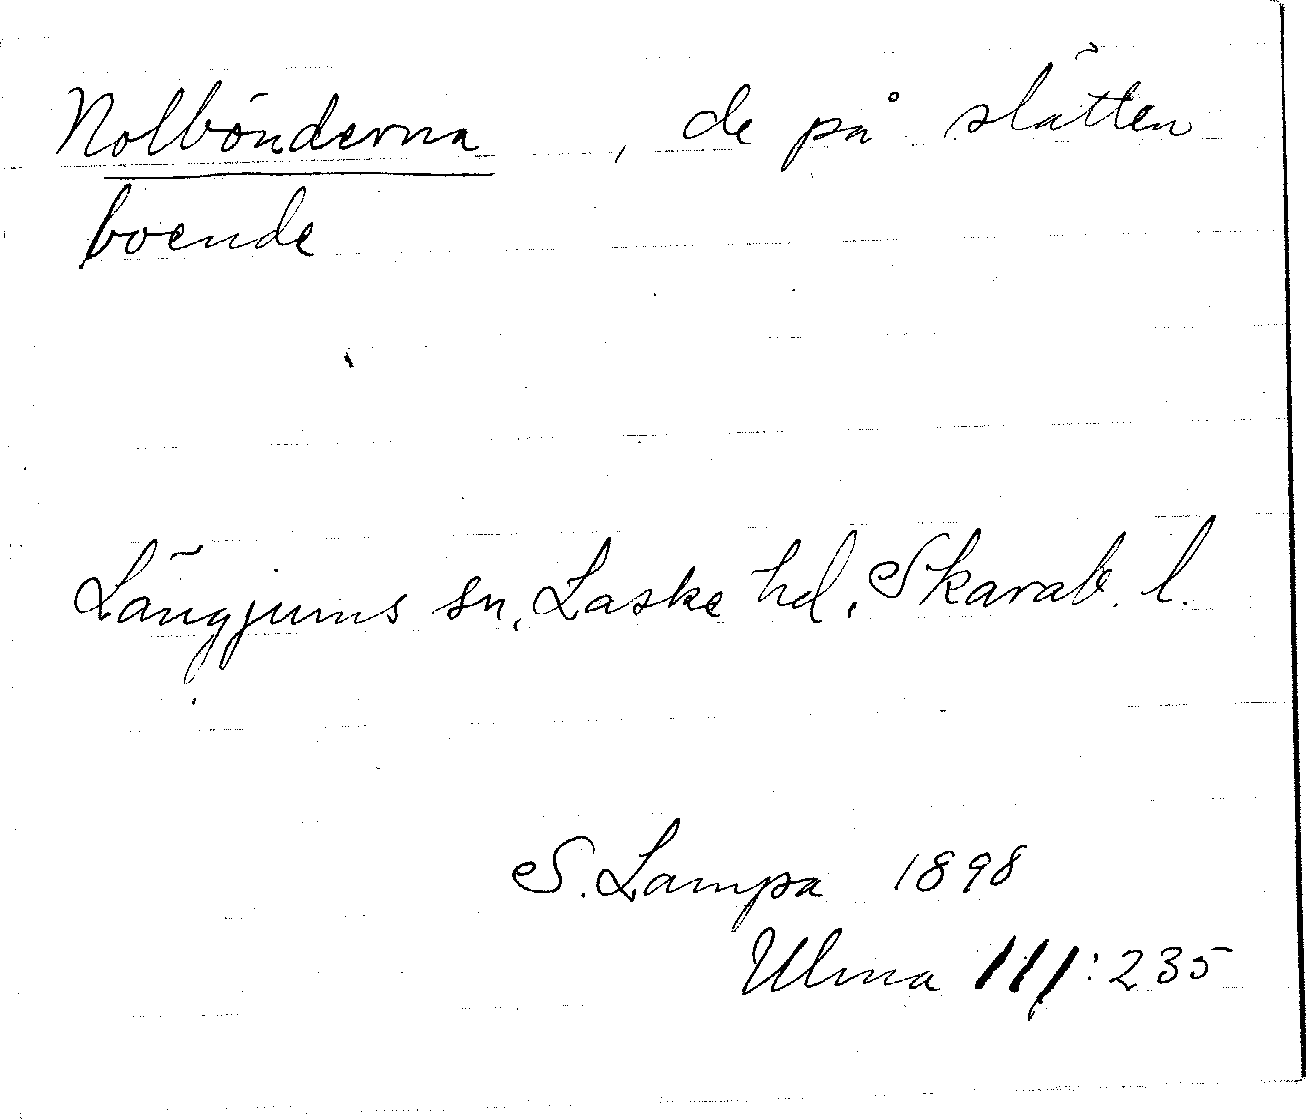 Nolbönderna , de på slätten
boende
Längjums sn, Laske hd, Skarab. l.
S. Lampa 1898
Ulma 111:235